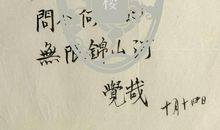 問公何
無限錦山河
覺哉
十月十四日